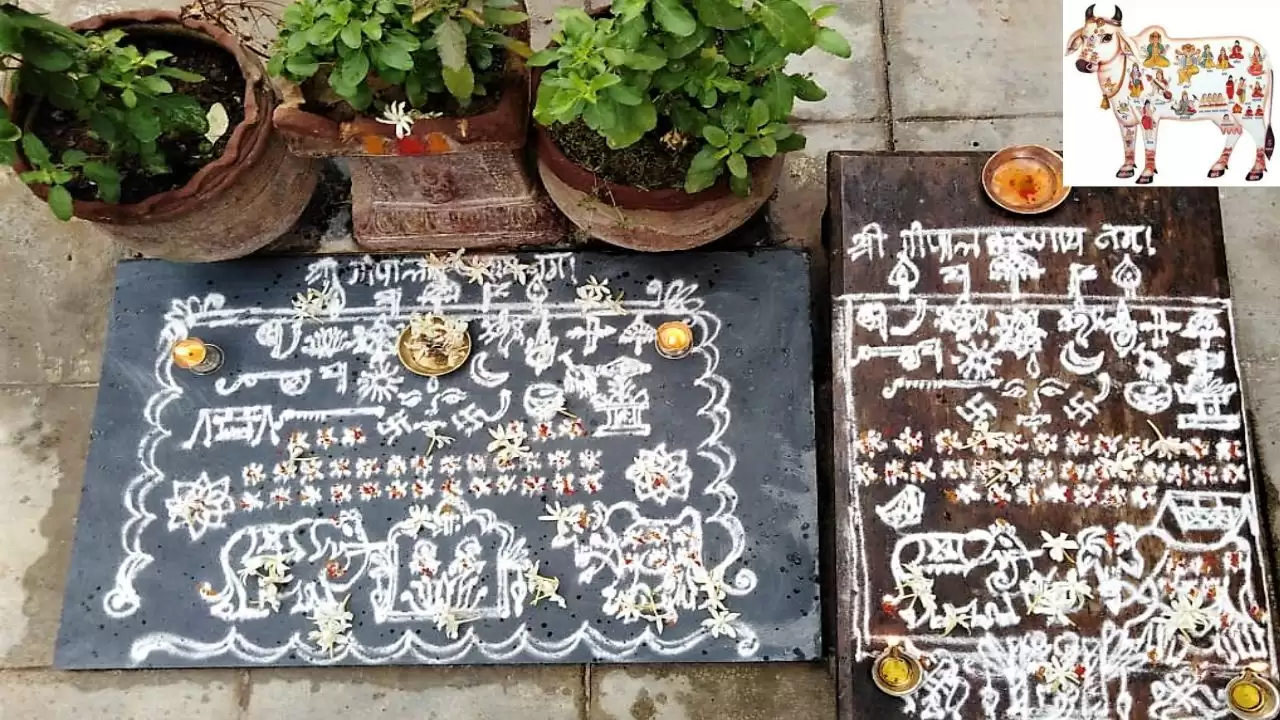 श्री गोपाल कृष्णाय नमः
श्री गोपाल कृष्णाय नमः